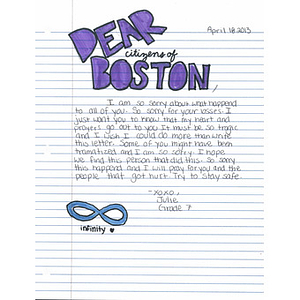 April 18 2013
DEAR
citizens of
BOSTON,
I am so sorry about what happend
to all of you. So sorry for your losses. I
just want you to know that my heart and
prayers go out to you. It must be so tragic
and I wish I could do more than write
this letter. Some of you might have been
tramatized and I am so sorry. I hope
we find this person that did this. So sorry
this happend and I will pray for you and the
people that got hurt. Try to stay safe.
-xoxo,
Julie
Grade 7
infinity